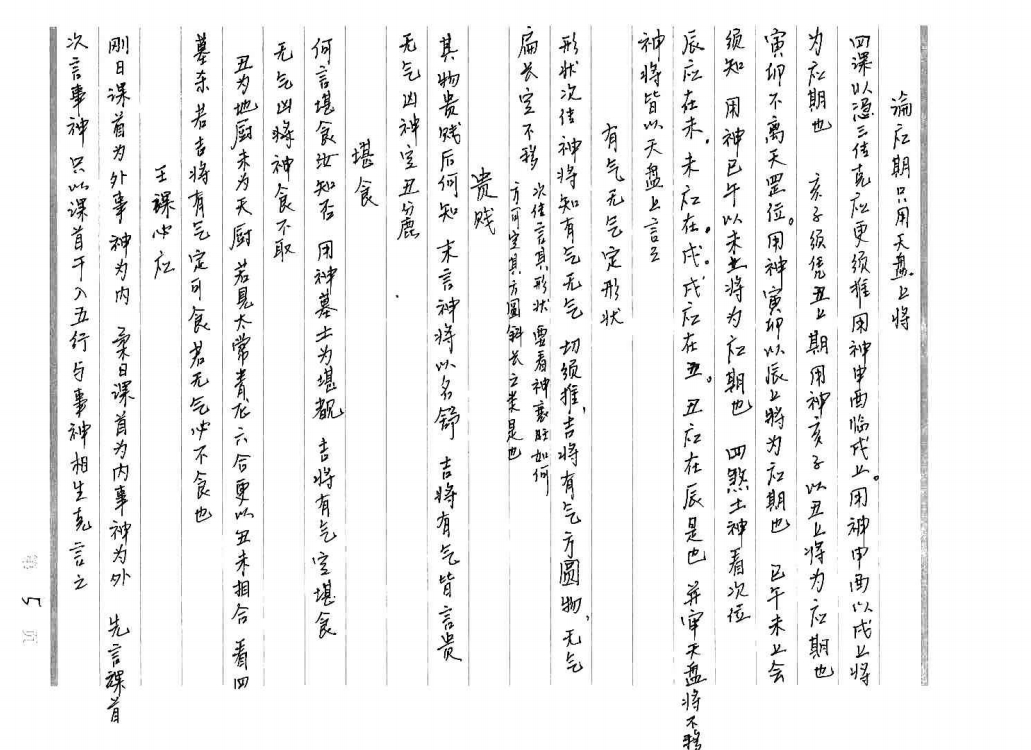 论应期只用天盘上将
四课以凭三传克应更须推用神申酉临戌上。用神申酉以戌上将
为应期也 亥子须凭丑上期用神亥子以丑上将为应期也
寅卯不离天罡位。用神寅卯以辰上将为应期也 巳午未上会
须知 用神巳午以未上将为应期也 四煞土神看次位
辰应在未。未应在戌。戌应在丑。丑应在辰是也 并审天盘将不移
神将皆以天盘上言之
有气无气定形状
形状次传神将知有气无气 切须推，吉将有气方圆物，无气
扁长定不移 次传言其形状 要看神衰旺如何
方可定其方圆斜长之类是也
贵贱
其物贵贱后何知 末言神将以名舒 吉将有气皆言贵
无气凶神定丑麄
堪食
何言堪食汝知否 用神墓土为堪觑 吉将有气定堪食
无气凶将神食不取
丑为地厨未为天厨 若见太常青龙六合更以丑未相合 看四
墓杀若吉将有气定可食若无气必不食也
王课必应
刚日课首为外事神为内 柔日课首为内事神为外 先言课首
次言事神 只以课首干入五行与事神相生克言之
第5页